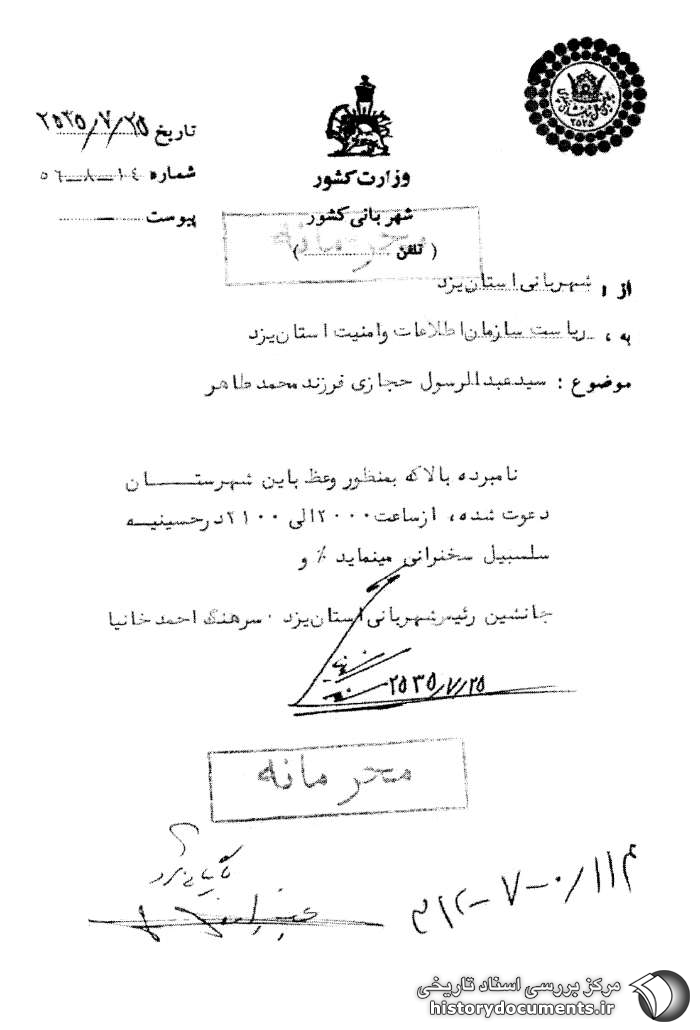 تاریخ ۲۵۳۵/۷/۲۵
شماره ۱۴-۸-۵۶
پیوست
وزارت کشور
شهربانی کشور
محرمانه
( تلفن .................... )
۲۵۳۵
از : شهربانی استان یزد
به : ریاست سازمان اطلاعات وامنیت استان یزد
موضوع : سیدعبدالرسول حجازی فرزند محمد طاهر
نامبرده بالاکه بمنظور وعظ باین شهرستــــان
دعوت شده، ازساعت ۲۰۰۰ الی ۲۱۰۰ درحسینیــه
سلسبیل سخنرانی مینماید ٪ و
جانشین رئیس شهربانی استان یزد ۰ سرهنگ احمد خانیا
۲۵۳۵/۷/۲۵
محرمانه
مرکز بررسی اسناد تاریخی
historydocuments.ir